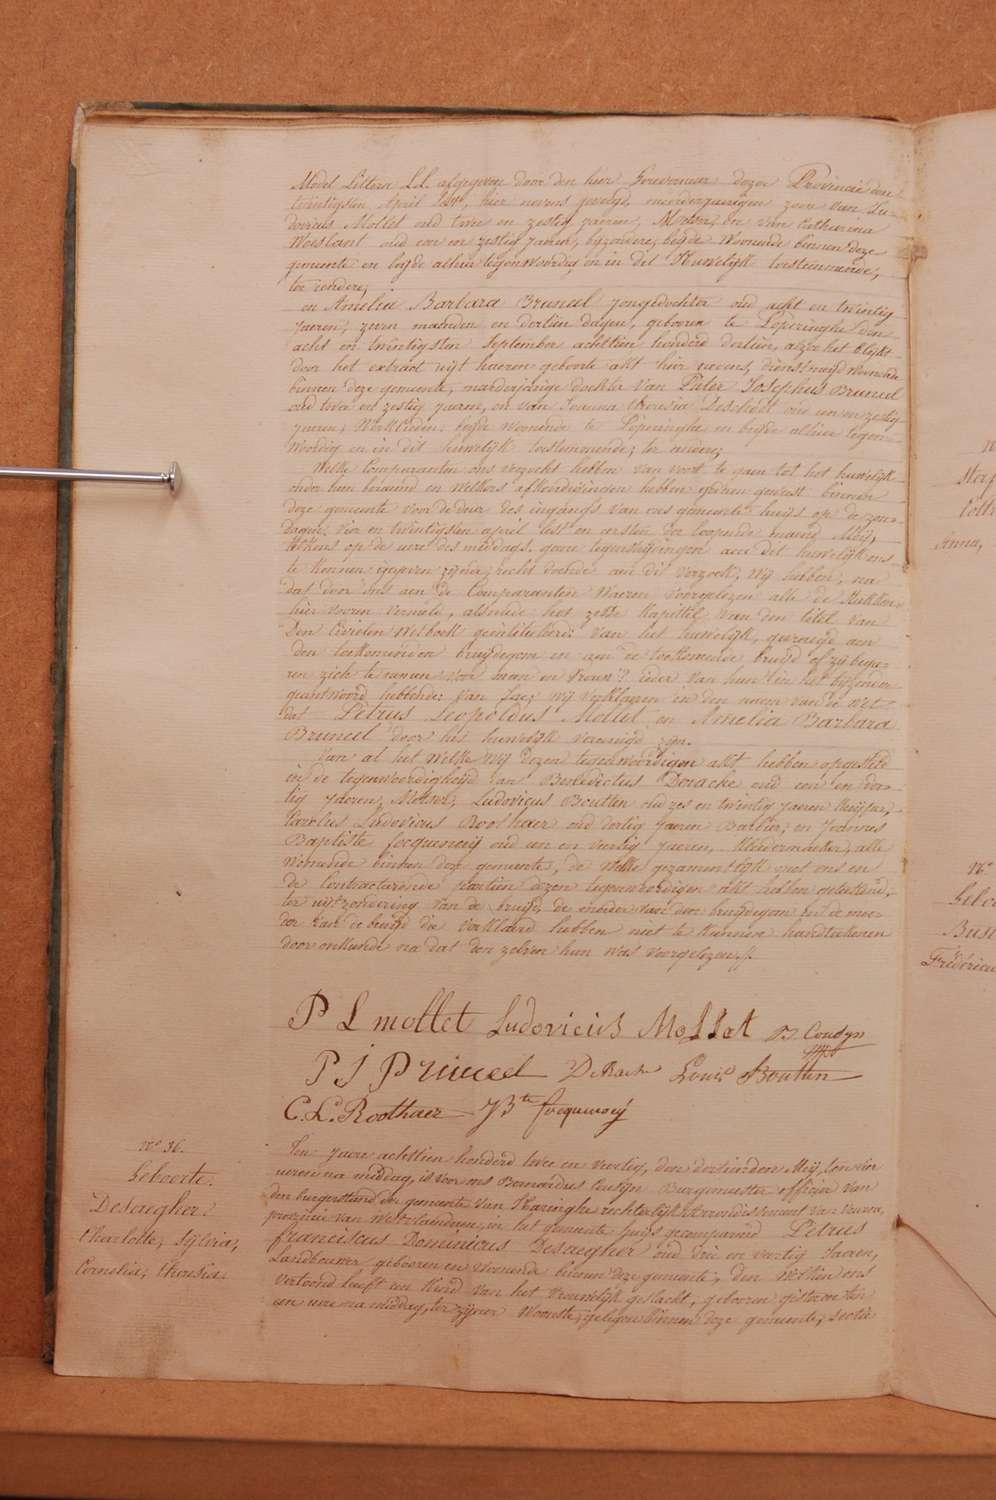 Model Littera L.L. afgegeven door den hier Gouverneur dezer Provincie den
twintigsten April 1842, hier nevens gevolgd, meerderjaerigen zoon van Lu-
dovicus Mollet oud twee en zestig jaeren, en van Catharina
oud een en zestig jaeren, byzondere, beyde Woonende binnen deze
gemeente en beyde alhier tegenwoordig en in dit Huwelijk toestemmende,
ter eendere;
en Amelia Barbara Bruneel jongedochter oud acht en twintig
jaeren, zeven maenden en dertien dagen, gebooren te Poperinghe den
acht en twintigsten September achttien honderd dertien, alzoo het blijkt
door het extract uijt haeren geboorte akt hier nevens, dienstmeijd Woonende
binnen deze gemeente, meerderjarige dochter van Pieter Josephus Bruneel
oud twee en zestig jaeren, en van Joanna Theresia Deschodt oud een en zestig
jaeren, Werklieden, beyde Woonende te Poperinghe en beyde alhier tegen-
woordig en in dit huwelijk toestemmende; ter andere;
Welke Comparanten ons verzocht hebben van voort te gaen tot het huwelijk
onder hun beraemd en Welkers afkondigingen hebben gedaen geweest binnen
deze gemeente voor de deur des ingangs van ons gemeente huijs op de zon-
dagen vier en twintigsten april lest en eersten der loopende maend Meij,
telkens op de uere des middags, geene tegenstrijdingen aen dit huwelijk ons
te kennen gegeven zijnde, recht doende aen dit verzoek, Wij hebben, na
dat door ons aen de Comparanten Waeren voorgelezen alle de Stukken
hier vooren vermeld, alsmede het zesde Kapittel van den titel van
Den Civielen Wetboek geintituleerd: van het huwelijk, gevraegd aen
den toekomenden bruijdegom en aen de toekomende bruijd of zij begee-
ren zich te nemen voor man en vrouw? ieder van hun in het byzonder
geantwoord hebbende: Van Jae; wij verklaeren in den naem van de Wet
dat Petrus Leopoldus Mollet en Amelia Barbara
Bruneel door het huwelijk vereenigd zijn.
Van al het Welke Wij dezen tegenwoordigen akt hebben opgesteld
in de tegenwoordigheijd van Benedictus Deracke oud een en der-
tig jaeren, Ludovicus Boutten oud zes en twintig jaeren
Carolus Ludovicus Roothaer oud dertig jaeren Barbier, en Joannes
Baptiste Jocquemeij oud een en veertig jaeren, Kleedermaeker, alle
Woonende binnen deze gemeente, de Welke gezamentlijk met ons en
de Contracteerende partien dezen tegenwoordigen akt hebben onderteekend,
ter uijtzondering van de bruijd, de moeder van den bruijdegom en de moe-
der van de bruijd die verklaerd hebben niet te kunnen handteekenen
door onkunde na dat den zelven hun was voorgelezen./.
P L mollet Ludovicus Mollet B. Coudyn
P J Pruneel Louis Boutten
C. L. Roothaer JBte Jocquemeij
N° 36.
Geboorte.
Desaegher
Charlotte, Sylvia,
Cornelia, Theresia.
Ten Jaere achttien honderd twee en veertig, den dertienden Meij, ten vier
ueren na middag, is voor ons Bernardus Coudijn Burgemeester officier van
den burgerstand der gemeente van Haringhe rechterlijk Arrondissement van Veurne,
provincie van Westvlaenderen, in het gemeente huijs gecompareerd Petrus
Franciscus Dominicus Desaegher oud drie en veertig Jaeren,
Landbouwer gebooren en Woonende binnen deze gemeente, den Welken ons
vertoond heeft een Kind van het Vrouwelijk geslacht, gebooren gisteren ten
een uere na middag, ter zijner Woonste, gelegen binnen deze gemeente, sectie
N°
Gebo
Bus
Frédéric
Anna,